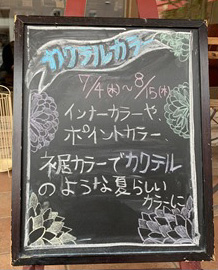 カクテルカラー
7/4(水)〜8/15(水)
インナーカラーや、
ポイントカラー、
裾カラーでカクテル
のような夏らしい
カラーに